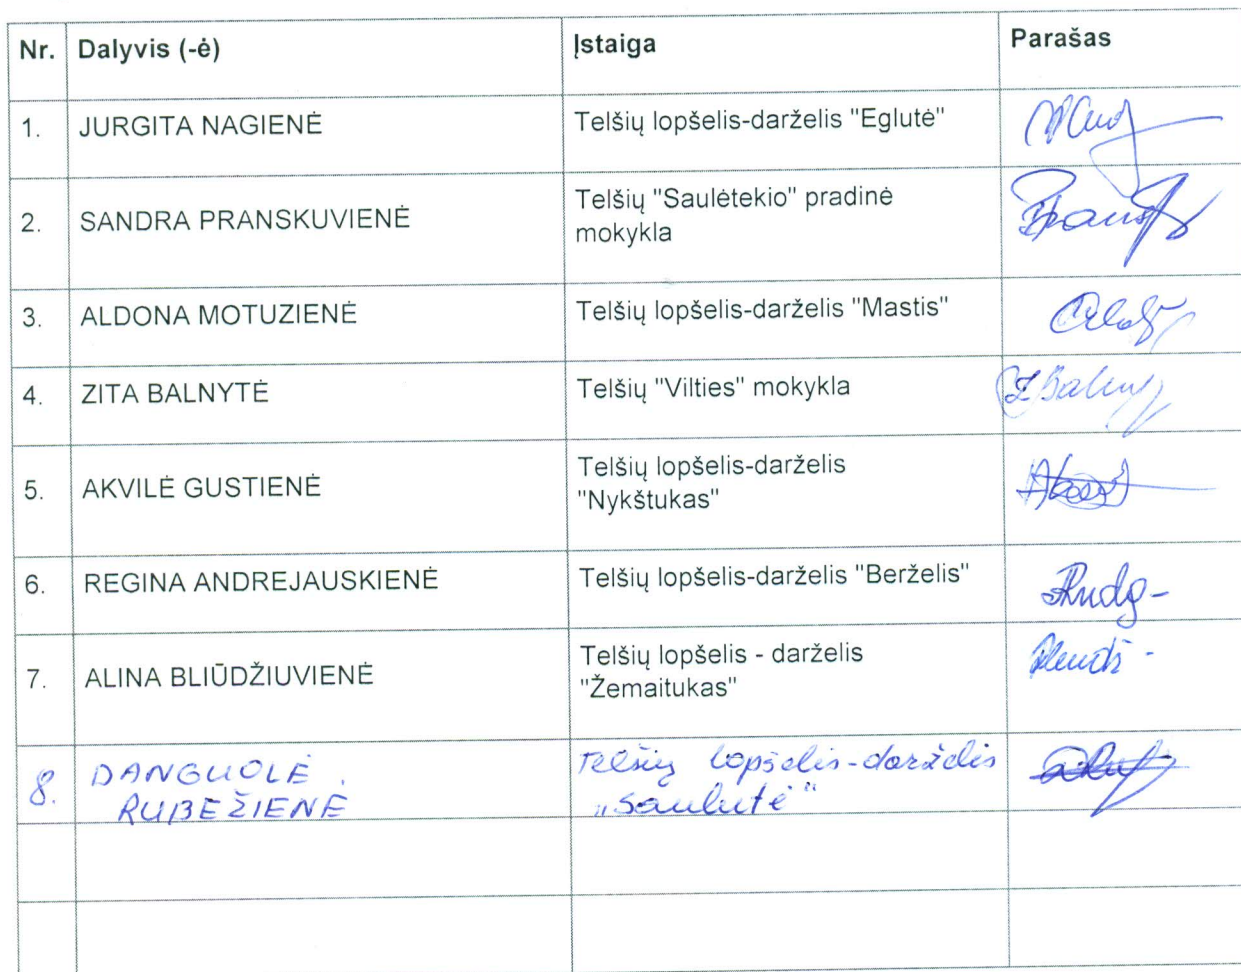 Nr. Dalyvis (-ė) Įstaiga Parašas
1. JURGITA NAGIENĖ Telšių lopšelis-darželis "Eglutė"
2. SANDRA PRANSKUVIENĖ Telšių "Saulėtekio" pradinė
mokykla
3. ALDONA MOTUZIENĖ Telšių lopšelis-darželis "Mastis"
4. ZITA BALNYTĖ Telšių "Vilties" mokykla
5. AKVILĖ GUSTIENĖ Telšių lopšelis-darželis
"Nykštukas"
6. REGINA ANDREJAUSKIENĖ Telšių lopšelis-darželis "Berželis"
7. ALINA BLIŪDŽIUVIENĖ Telšių lopšelis - darželis
"Žemaitukas"
8. DANGUOLĖ Telšių lopšelis-darželis
RUBEŽIENĖ „Saulutė“